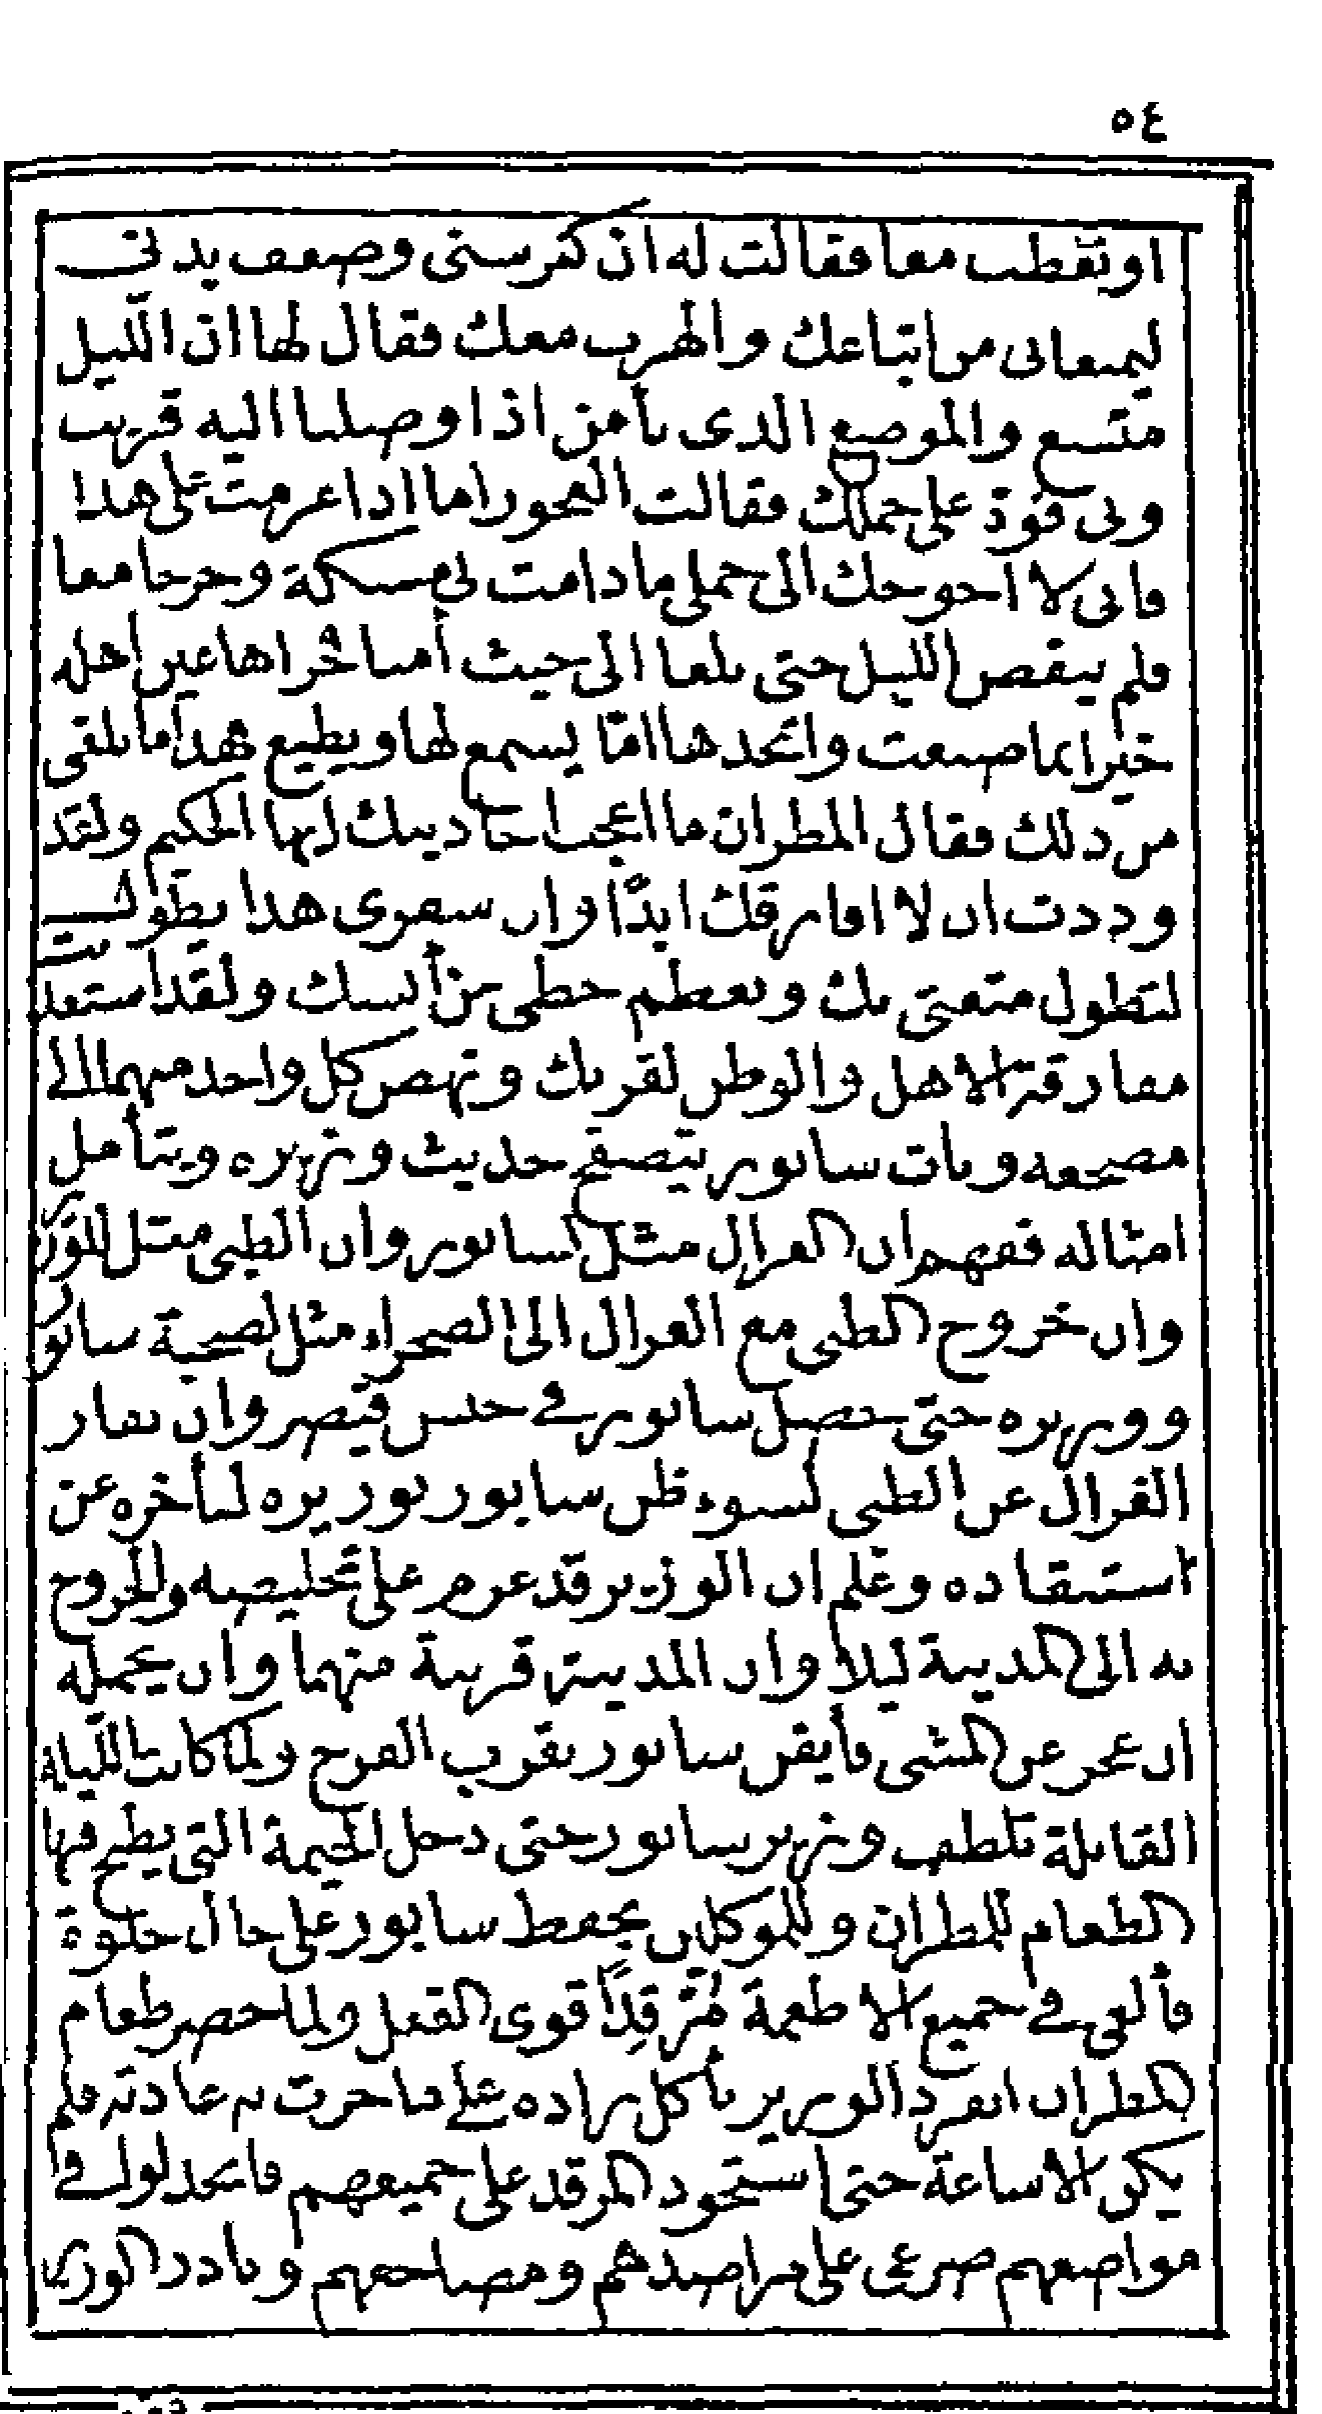 ٥٤
او نعطب معا فقالت له ان كبر سنى وضعف بدنى
ليمنعانى من اتباعك والهرب معك فقال لها ان الليل
متسع والموضع الذى نأمن اذا وصلنا اليه قريب
وبى قوة على حملك فقالت العجوز اما اذا عزمت على هذا
فانى لا احوجك الى حملى ما دامت لى مسكة وخرجا معا
فلم ينقض الليل حتى بلغا الى حيث أمنا فجزاها عين اهله
خيرا بما صنعت واتخذها امّا يسمع لها ويطيع هذا ما بلغنى
من ذلك فقال المطران ما اعجب احاديثك ايها الحكيم ولقد
وددت ان لا افارقك ابدًا وان سفرى هذا يطول
لتطول متعتى بك ويعظم حظى من أنسك ولقد استعذبت
مفارقة الاهل والوطن لقربك ونهض كل واحد منهما الى
مضجعه وبات سابور يتصفح حديث وزيره ويتأمل
امثاله ففهم ان الغزال مثل لسابور وان الظبى مثل للوزير
وان خروج الظبى مع الغزال الى الصحراء مثل لصحبة سابور
ووزيره حتى حصل سابور فى حبس قيصر وان نفار
الغزال عن الظبى لسوء ظن سابور بوزيره لتأخره عن
استنقاذه وعلم ان الوزير قد عزم على تخليصه والخروج
به الى المدينة ليلا وان المدينة قريبة منهما وان يحمله
ان عجز عن المشى فأيقن سابور بقرب الفرج ولما كانت الليلة
القابلة تلطف وزير سابور حتى دخل الخيمة التى يطبخ فيها
الطعام للمطران وللموكلين بحفظ سابور على حال خلوة
فألقى فى جميع الاطعمة مُرْقِدًا قوى الفعل ولما حضر طعام
المطران انفرد الوزير يأكل زاده على ما جرت به عادته فلم
يكن الا ساعة حتى استحوذ المرقد على جميعهم فانجدلوا فى
مواضعهم صرعى على مراصدهم ومضاجعهم وبادر الوزير